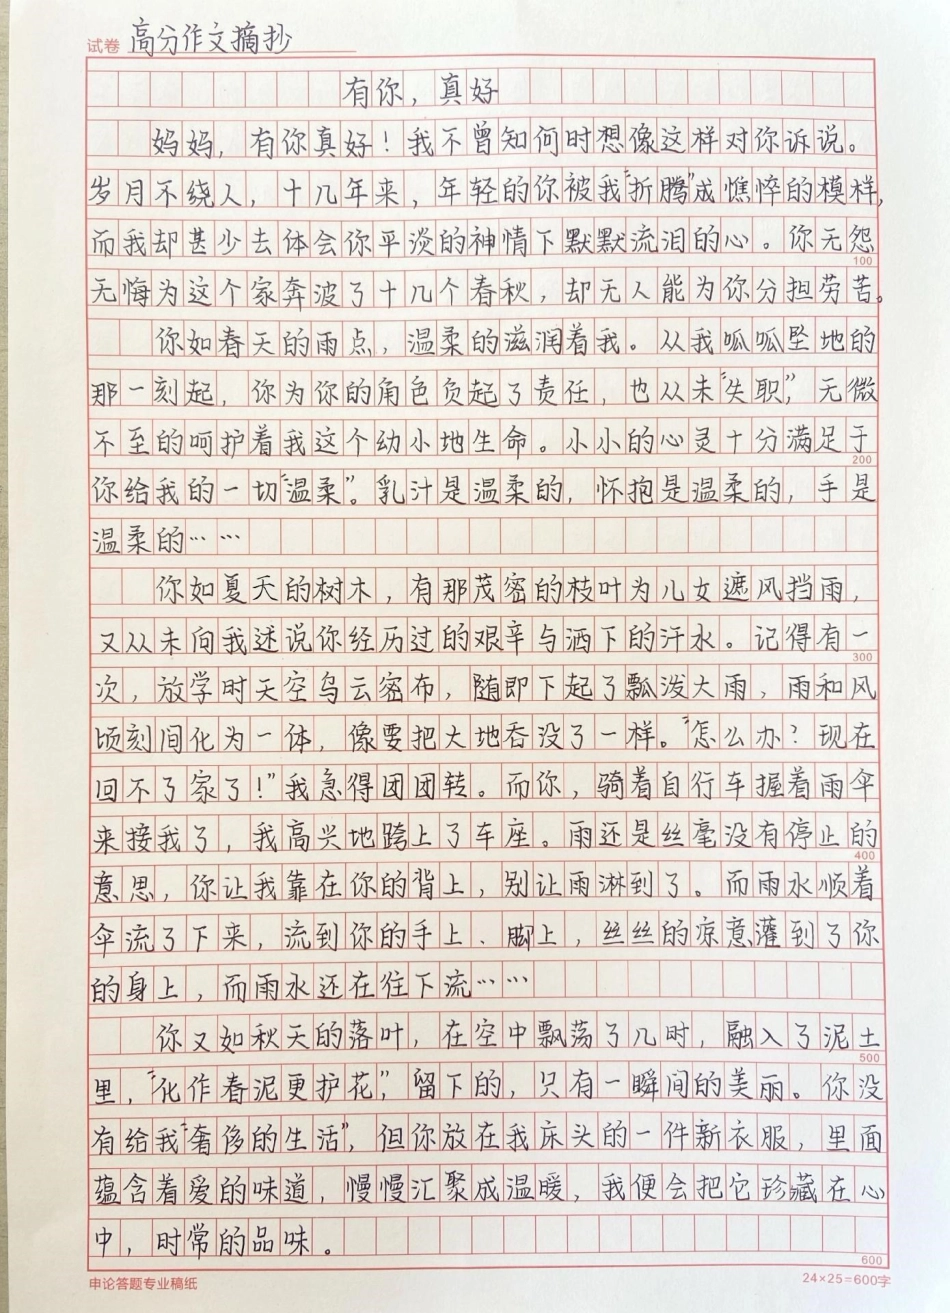 试卷 高分作文摘抄
有你，真好
妈妈，有你真好！我不曾知何时想像这样对你诉说。
岁月不绕人，十几年来，年轻的你被我“折腾”成憔悴的模样，
而我却甚少去体会你平淡的神情下默默流泪的心。你无怨
100
无悔为这个家奔波了十几个春秋，却无人能为你分担劳苦。
你如春天的雨点，温柔的滋润着我。从我呱呱坠地的
那一刻起，你为你的角色负起了责任，也从未“失职”，无微
不至的呵护着我这个幼小地生命。小小的心灵十分满足于
200
你给我的一切“温柔”。乳汁是温柔的，怀抱是温柔的，手是
温柔的……
你如夏天的树木，有那茂密的枝叶为儿女遮风挡雨，
又从未向我述说你经历过的艰辛与洒下的汗水。记得有一
300
次，放学时天空乌云密布，随即下起了瓢泼大雨，雨和风
顷刻间化为一体，像要把大地吞没了一样。“怎么办？现在
回不了家了！”我急得团团转。而你，骑着自行车握着雨伞
来接我了，我高兴地跨上了车座。雨还是丝毫没有停止的
400
意思，你让我靠在你的背上，别让雨淋到了。而雨水顺着
伞流了下来，流到你的手上、脚上，丝丝的凉意灌到了你
的身上，而雨水还在往下流……
你又如秋天的落叶，在空中飘荡了几时，融入了泥土
500
里，“化作春泥更护花”，留下的，只有一瞬间的美丽。你没
有给我“奢侈的生活”，但你放在我床头的一件新衣服，里面
蕴含着爱的味道，慢慢汇聚成温暖，我便会把它珍藏在心
中，时常的品味。
600
申论答题专业稿纸 24×25=600字